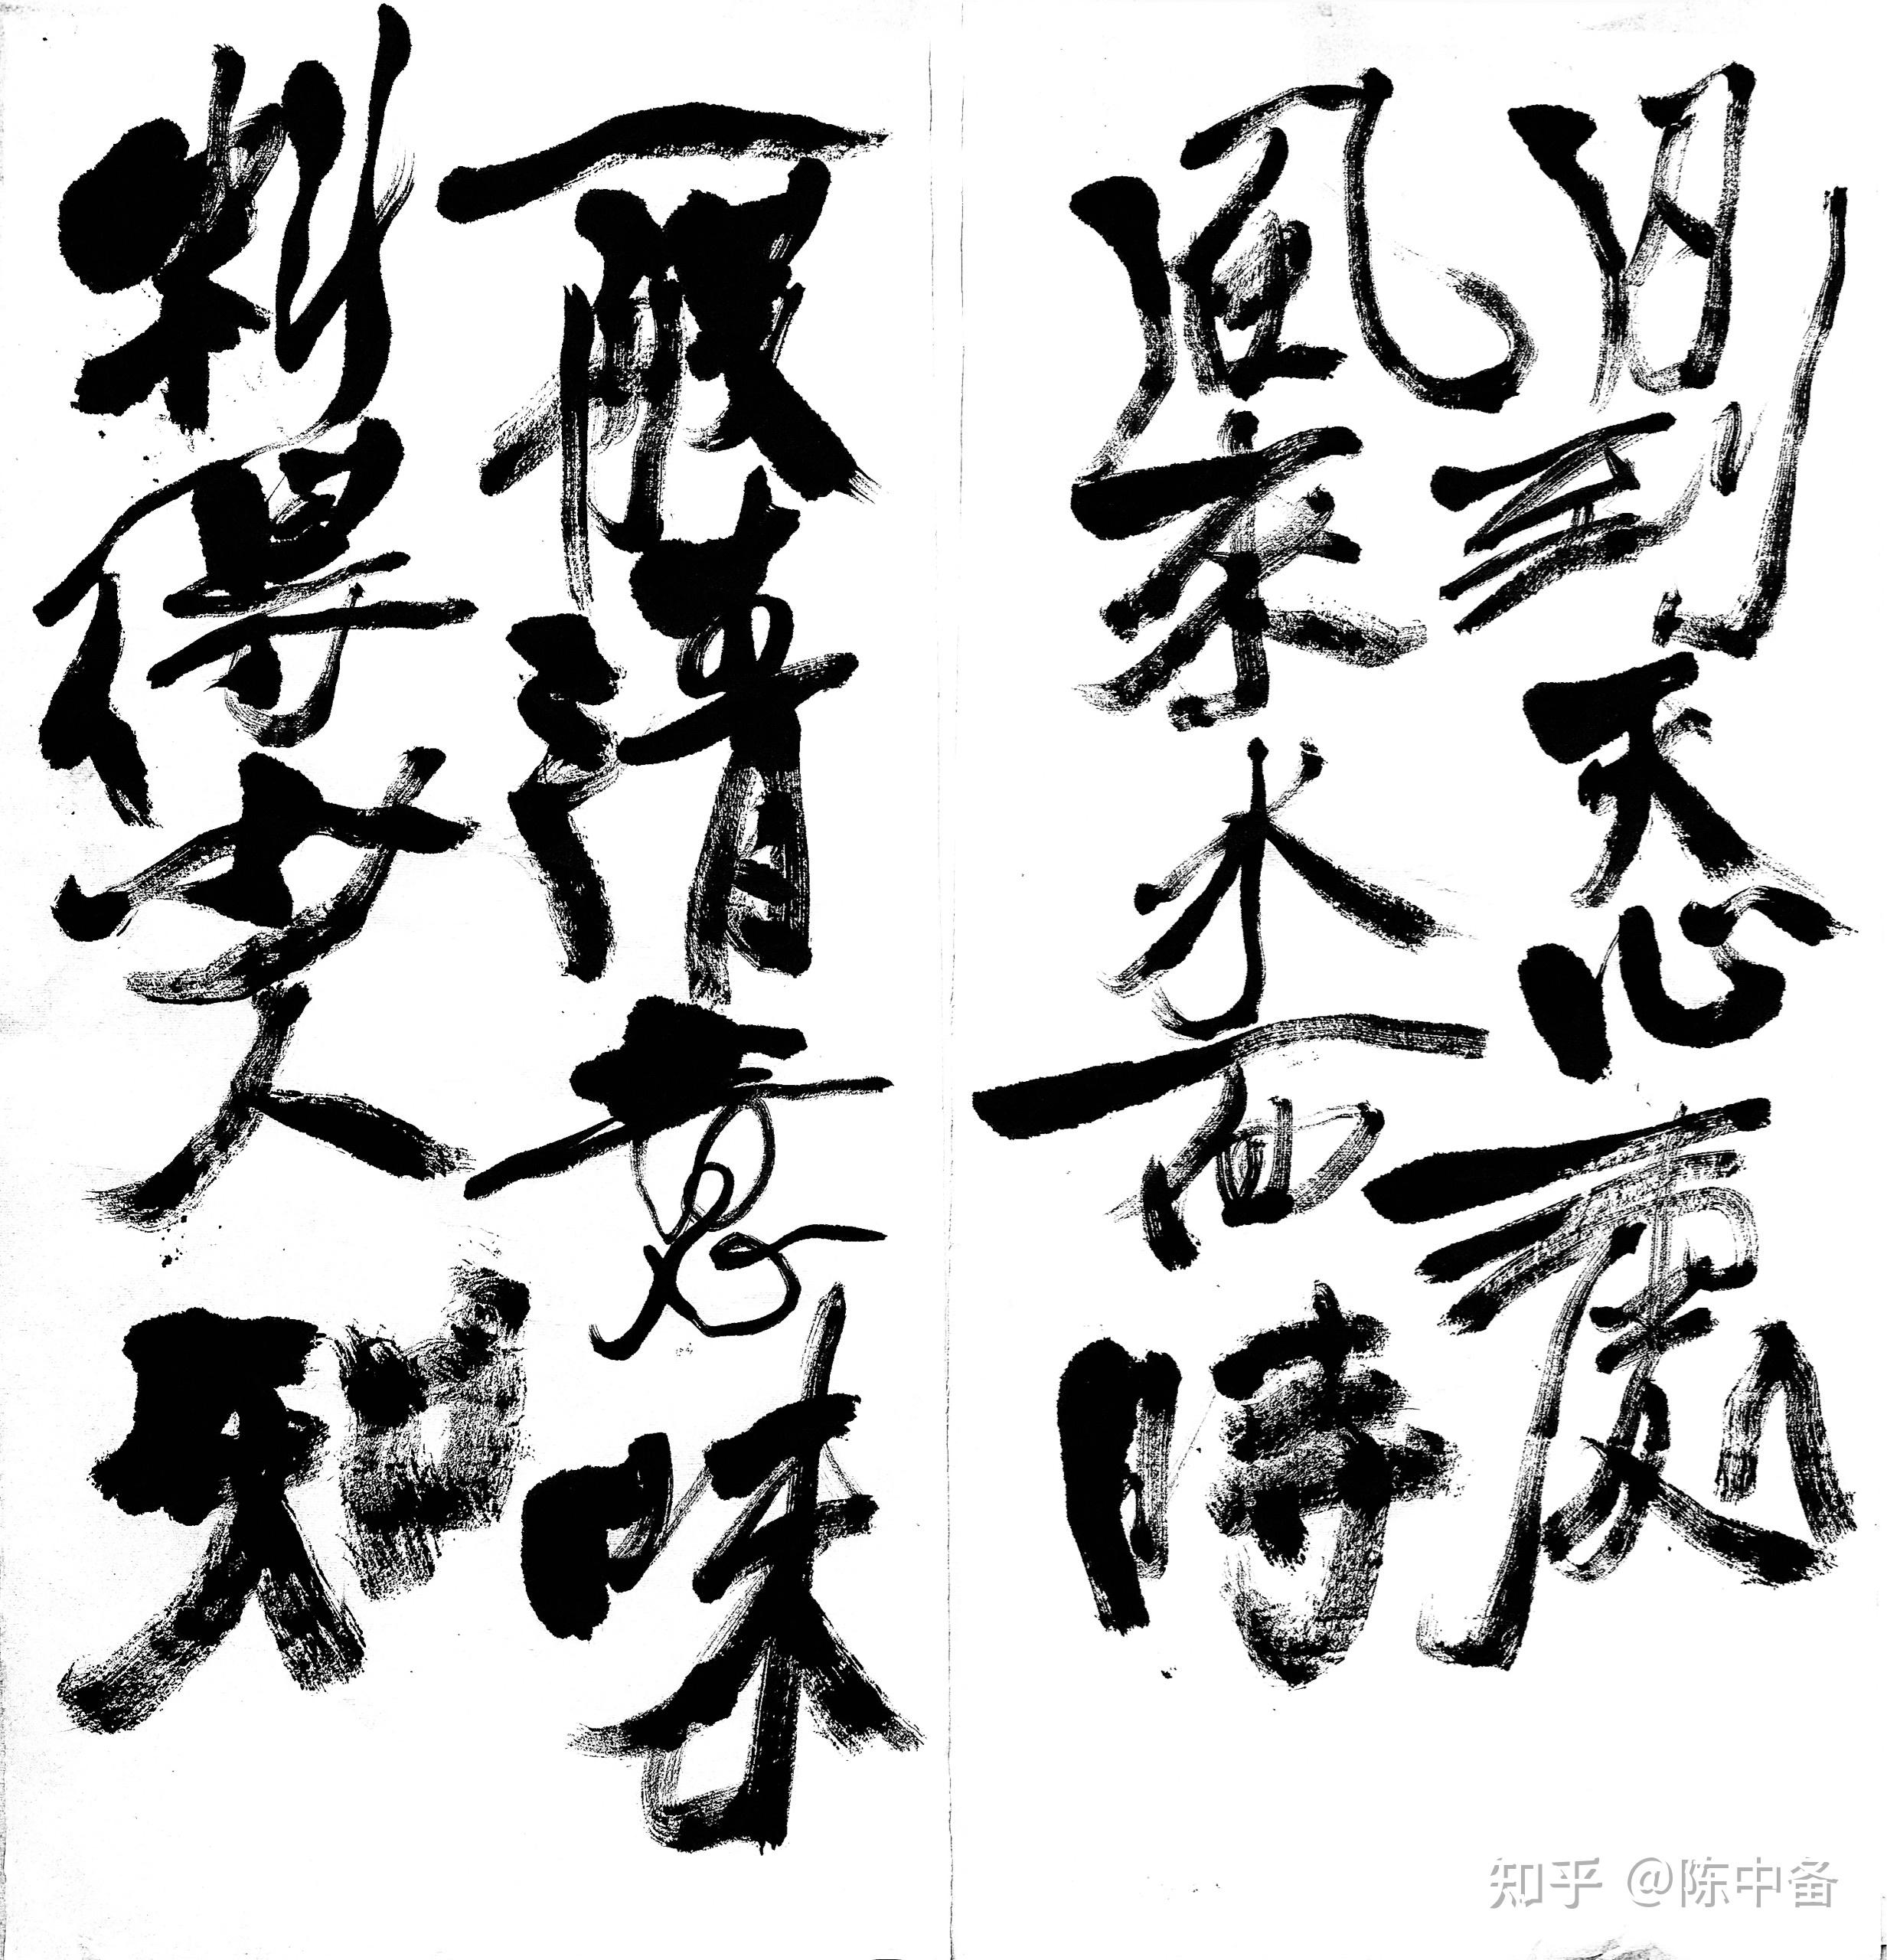 月到天心處
風来水面時
一般清意味
料得少人知
知乎 @陈中备